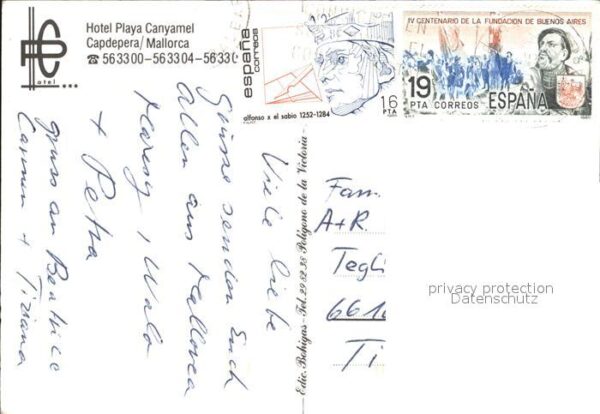 Hotel Playa Canyamel
Capdepera/Mallorca
☎ 563300-563304-56330
Hotel...
españa
correos
alfonso x el sabio 1252-1284
16
PTA
IV CENTENARIO DE LA FUNDACION DE BUENOS AIRES
19
PTA CORREOS ESPAÑA
Viele liebe
Grüsse senden Euch
Allen aus Mallorca
Maresy, Walo
+ Petra
gruss an Beatrice
Carmen + Tiziana
Edic. Bohigas-Tel. 298238-Polígono de la Victoria-
Fam.
A+R.
Tegl
661
Ti
privacy protection
Datenschutz